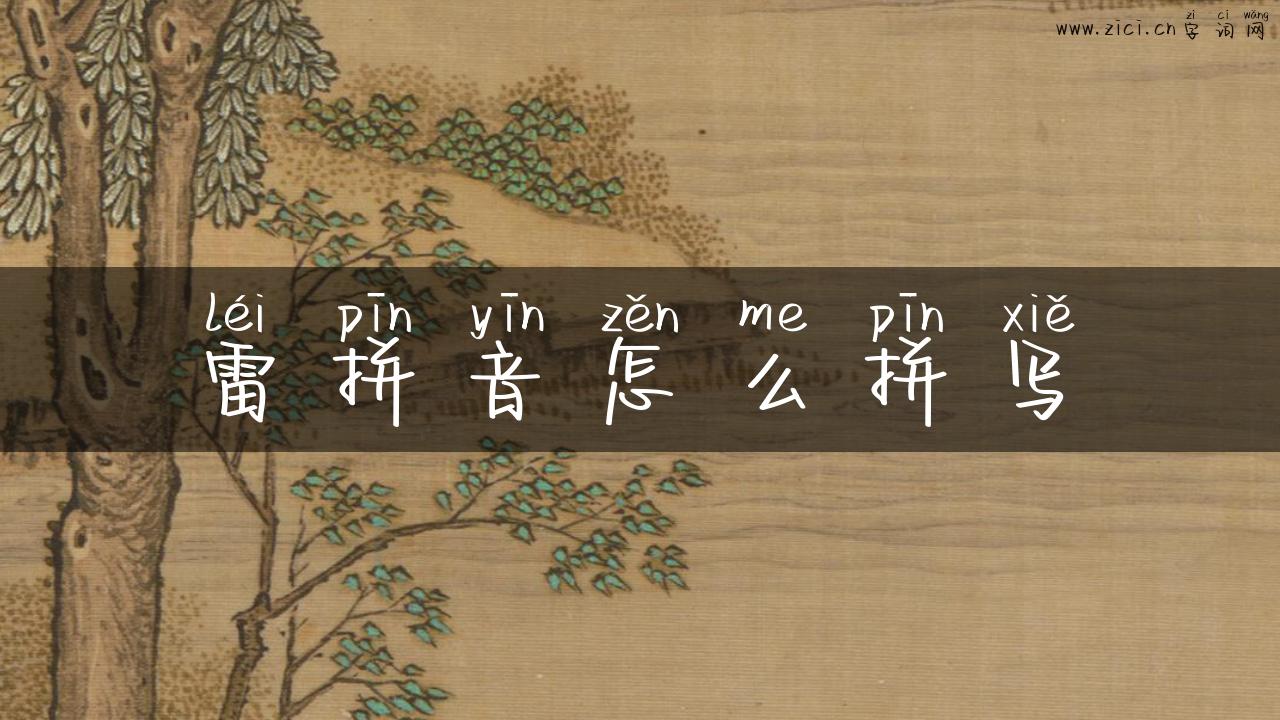 zì cí wǎng
www.zici.cn 字词网
léi pīn yīn zěn me pīn xiě
雷拼音怎么拼写